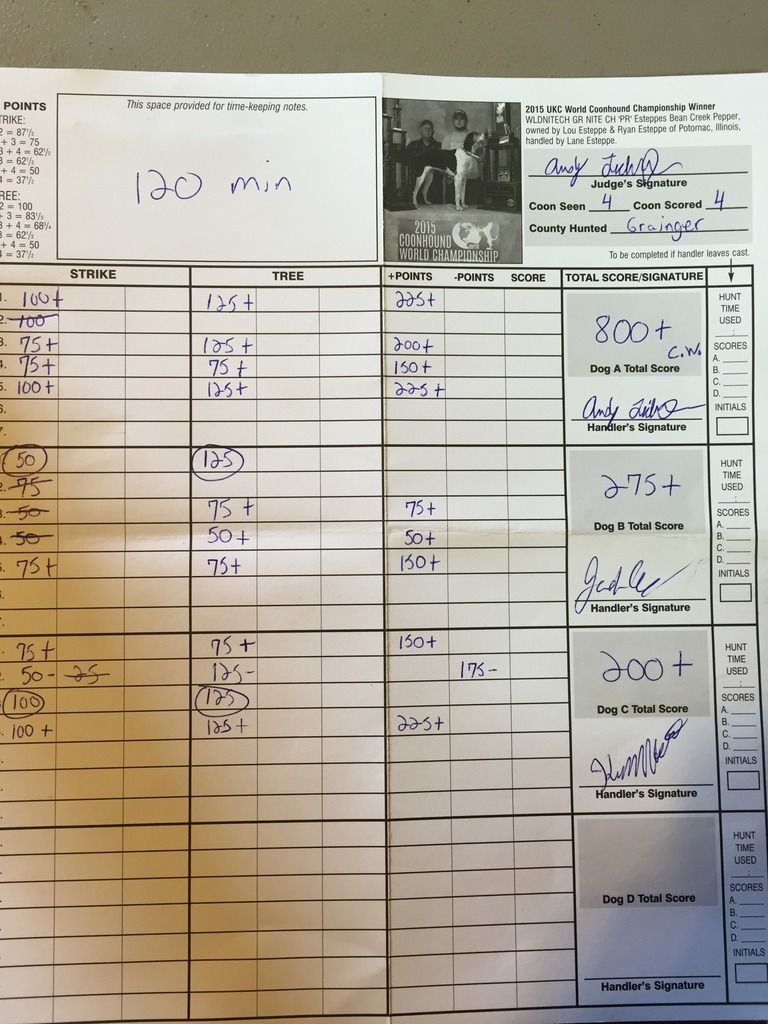 POINTS
TRIKE:
2 = 87½
+ 3 = 75
3 + 4 = 62½
3 = 62½
+ 4 = 50
4 = 37½
REE:
2 = 100
+ 3 = 83⅓
3 + 4 = 68¼
3 = 62½
+ 4 = 50
4 = 37½
This space provided for time-keeping notes.
120 min
2015
COONHOUND
WORLD CHAMPIONSHIP
2015 UKC World Coonhound Championship Winner
WLDNITECH GR NITE CH 'PR' Esteppes Bean Creek Pepper,
owned by Lou Esteppe & Ryan Esteppe of Potomac, Illinois,
handled by Lane Esteppe.
Andy
Judge's Signature
Coon Seen 4 Coon Scored 4
County Hunted Grainger
To be completed if handler leaves cast.
STRIKE TREE +POINTS -POINTS SCORE TOTAL SCORE/SIGNATURE
1. 100+ 125+ 225+
2. 100
3. 75+ 125+ 200+
4. 75+ 75+ 150+
5. 100+ 125+ 225+
6.
7.
800+
C.W.
Dog A Total Score
Andy
Handler's Signature
HUNT
TIME
USED
:
SCORES
A.
B.
C.
D.
INITIALS
50 125
2. 75
3. 50 75+ 75+
4. 50 50+ 50+
5. 75+ 75+ 150+
275+
Dog B Total Score
Handler's Signature
HUNT
TIME
USED
:
SCORES
A.
B.
C.
D.
INITIALS
75+ 75+ 150+
50- 25 125- 175-
100 125
100+ 125+ 225+
200+
Dog C Total Score
Handler's Signature
HUNT
TIME
USED
:
SCORES
A.
B.
C.
D.
INITIALS
Dog D Total Score
Handler's Signature
HUNT
TIME
USED
:
SCORES
A.
B.
C.
D.
INITIALS